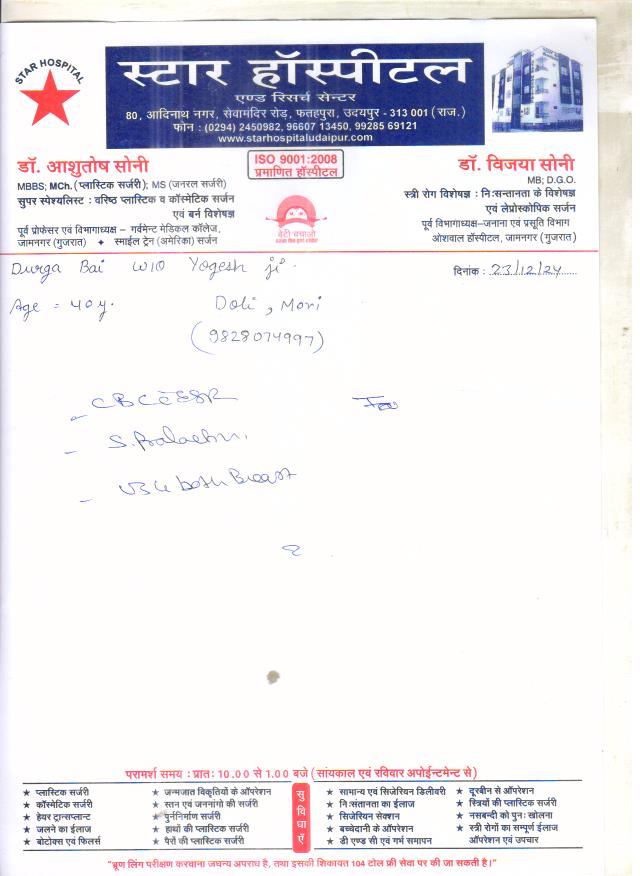 STAR HOSPITAL
स्टार हॉस्पीटल
एण्ड रिसर्च सेन्टर
80, आदिनाथ नगर, सेवामंदिर रोड़, फतहपुरा, उदयपुर - 313 001 (राज.)
फोन : (0294) 2450982, 96607 13450, 99285 69121
www.starhospitaludaipur.com
डॉ. आशुतोष सोनी
MBBS; MCh. (प्लास्टिक सर्जरी); MS (जनरल सर्जरी)
सुपर स्पेश्यलिस्ट : वरिष्ठ प्लास्टिक व कॉस्मेटिक सर्जन
एवं बर्न विशेषज्ञ
पूर्व प्रोफेसर एवं विभागाध्यक्ष – गर्वमेन्ट मेडिकल कॉलेज,
जामनगर (गुजरात) ✦ स्माईल ट्रेन (अमेरिका) सर्जन
ISO 9001:2008
प्रमाणित हॉस्पीटल
बेटी बचाओ
डॉ. विजया सोनी
MB; D.G.O.
स्त्री रोग विशेषज्ञ : निःसन्तानता के विशेषज्ञ
एवं लेप्रोस्कोपिक सर्जन
पूर्व विभागाध्यक्ष–जनाना एवं प्रसूति विभाग
ओशवाल हॉस्पीटल, जामनगर (गुजरात)
Durga Bai W/O Yogesh ji.
दिनांक : 23/12/24
Age = 40 y. Doli, Mori
(9828074997)
- CBC c ESR
- S. Prolactin.
- USG both Breast
परामर्श समय : प्रातः 10.00 से 1.00 बजे (सांयकाल एवं रविवार अपोईन्टमेन्ट से)
★ प्लास्टिक सर्जरी
★ कॉस्मेटिक सर्जरी
★ हेयर ट्रान्सप्लान्ट
★ जलने का ईलाज
★ बोटोक्स एवं फिलर्स
★ जन्मजात विकृतियों के ऑपरेशन
★ स्तन एवं जननांगो की सर्जरी
★ पुर्ननिर्माण सर्जरी
★ हाथों की प्लास्टिक सर्जरी
★ पैरों की प्लास्टिक सर्जरी
सुविधाएँ
★ सामान्य एवं सिजेरियन डिलीवरी
★ निःसंतानता का ईलाज
★ सिजेरियन सेक्शन
★ बच्चेदानी के ऑपरेशन
★ डी एण्ड सी एवं गर्भ समापन
★ दूरबीन से ऑपरेशन
★ स्त्रियों की प्लास्टिक सर्जरी
★ नसबन्दी को पुनः खोलना
★ स्त्री रोगों का सम्पूर्ण ईलाज
ऑपरेशन एवं उपचार
"भ्रूण लिंग परीक्षण करवाना जघन्य अपराध है, तथा इसकी शिकायत 104 टोल फ्री सेवा पर की जा सकती है।"